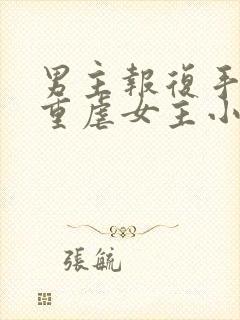 男主報復手
重虐女主小
張毓